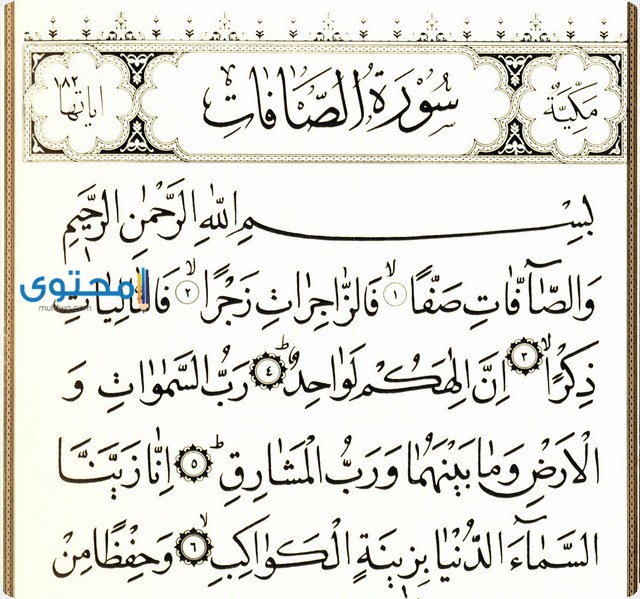 مَكِّيَّةٌ
سُورَةُ الصَّافَّاتِ
اياتها ١٨٢
بِسْمِ اللّٰهِ الرَّحْمٰنِ الرَّحِيمِ
وَالصَّٓافَّاتِ صَفًّاۙ ١ فَالزَّاجِرَاتِ زَجْرًاۙ ٢ فَالتَّالِيَاتِ
ذِكْرًاۙ ٣ اِنَّ اِلٰهَكُمْ لَوَاحِدٌۜ ٤ رَبُّ السَّمٰوَاتِ وَ
الْاَرْضِ وَمَا بَيْنَهُمَا وَرَبُّ الْمَشَارِقِۜ ٥ اِنَّا زَيَّنَّا
السَّمَٓاءَ الدُّنْيَا بِزِينَةٍ الْكَوَاكِبِۙ ٦ وَحِفْظًا مِنْ
المحتوى